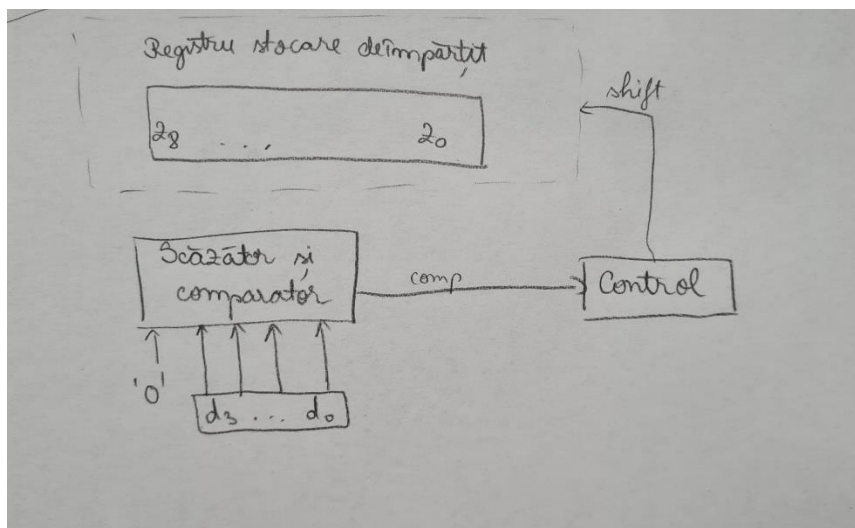 Registru stocare deîmpărțit
shift
z₈ .... z₀
Scăzător și
comparator
comp
Control
'0'
d₃ ... d₀